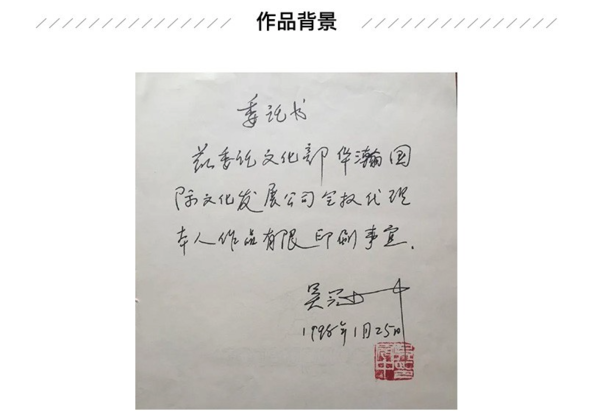 作品背景
委托书
兹委托文化部华瀚国
际文化发展公司全权代理
本人作品有限印刷事宜.
吴冠中
1996年1月25日